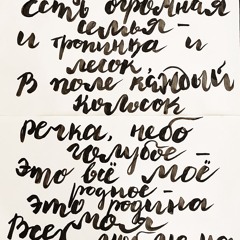 есть огромная
семья -
и тропинка и
лесок,
В поле каждый
колосок
Речка, небо
голубое -
Это всё моё
родное -
Это родина
моя
Всех